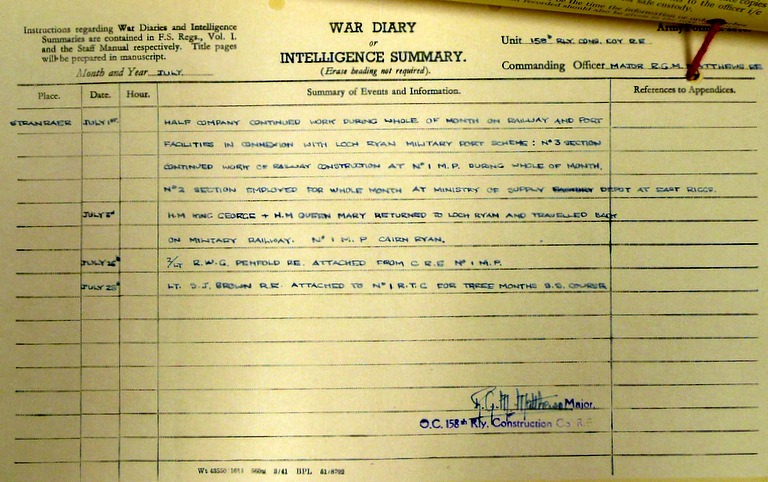 Instructions regarding War Diaries and Intelligence
Summaries are contained in F.S. Regs., Vol. I.
and the Staff Manual respectively. Title pages
will be prepared in manuscript.
Month and Year JULY.
WAR DIARY
or
INTELLIGENCE SUMMARY.
(Erase heading not required).
Army Form
Unit 158th RLY. CONS. COY R.E
Commanding Officer MAJOR R.G.M. MATTHEWS RE
Place. Date. Hour. Summary of Events and Information. References to Appendices.
STRANRAER JULY 1ST. HALF COMPANY CONTINUED WORK DURING WHOLE OF MONTH ON RAILWAY AND PORT
FACILITIES IN CONNEXION WITH LOCH RYAN MILITARY PORT SCHEME: No 3 SECTION
CONTINUED WORK OF RAILWAY CONSTRUCTION AT No 1 M.P. DURING WHOLE OF MONTH.
No 2 SECTION EMPLOYED FOR WHOLE MONTH AT MINISTRY OF SUPPLY DEPOT AT EAST RIGGS.
JULY H.M KING GEORGE + H.M QUEEN MARY RETURNED TO LOCH RYAN AND TRAVELLED BACK
ON MILITARY RAILWAY. No 1 M.P CAIRN RYAN.
JULY 2/LT R.W.G. PENFOLD RE. ATTACHED FROM C R E No 1 M.P.
JULY 25th LT. S.J. BROWN R.E. ATTACHED TO No 1 R.T.C FOR THREE MONTHS COURSE
R.G.M. Matthews Major.
O.C. 158th Rly. Construction Co. R.E.
BPL 51/8792